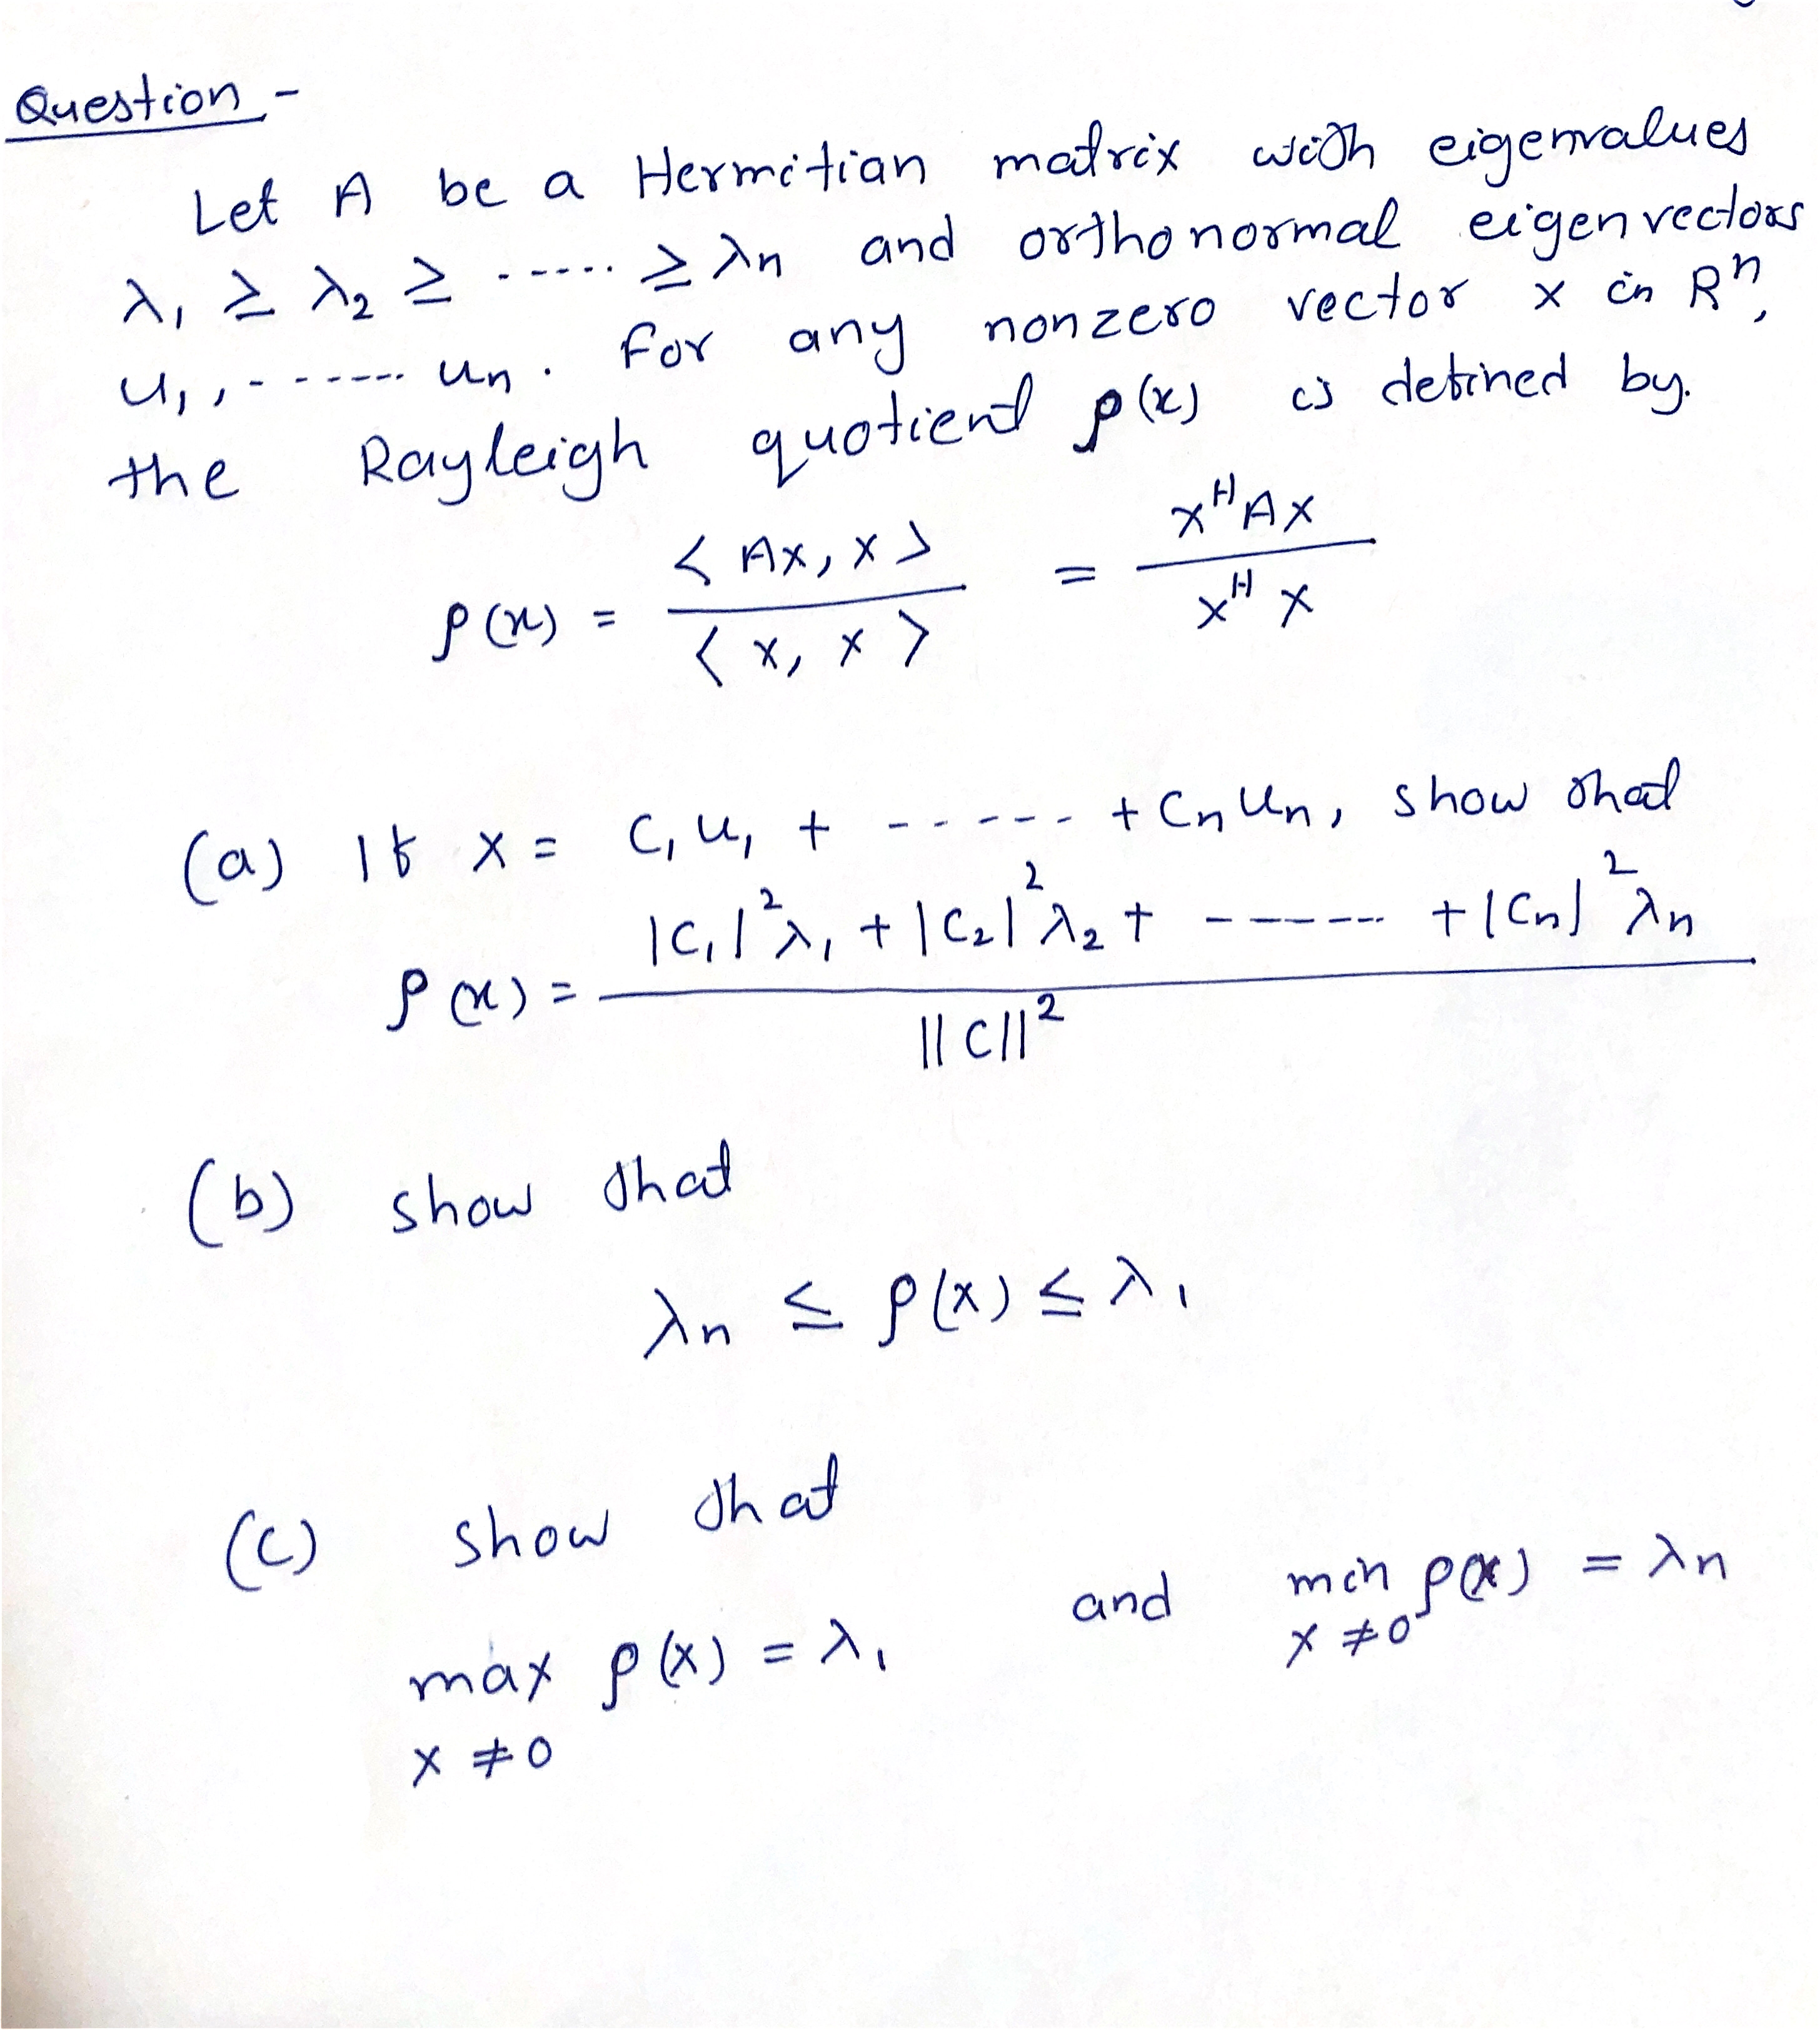 Question -
Let A be a Hermitian matrix with eigenvalues
λ₁ ≥ λ₂ ≥ ----- ≥ λn and orthonormal eigenvectors
u₁, ------ un. For any nonzero vector x in Rⁿ,
the Rayleigh quotient ρ(x) is defined by.
ρ(x) = <Ax, x> / <x, x> = xᴴAx / xᴴx
(a) If x = C₁u₁ + ----- + Cnun, show that
ρ(x) = |C₁|²λ₁ + |C₂|²λ₂ + ------ + |Cn|²λn / ||C||²
(b) show that
λn ≤ ρ(x) ≤ λ₁
(c) show that
max ρ(x) = λ₁ and min ρ(x) = λn
x ≠ 0 x ≠ 0